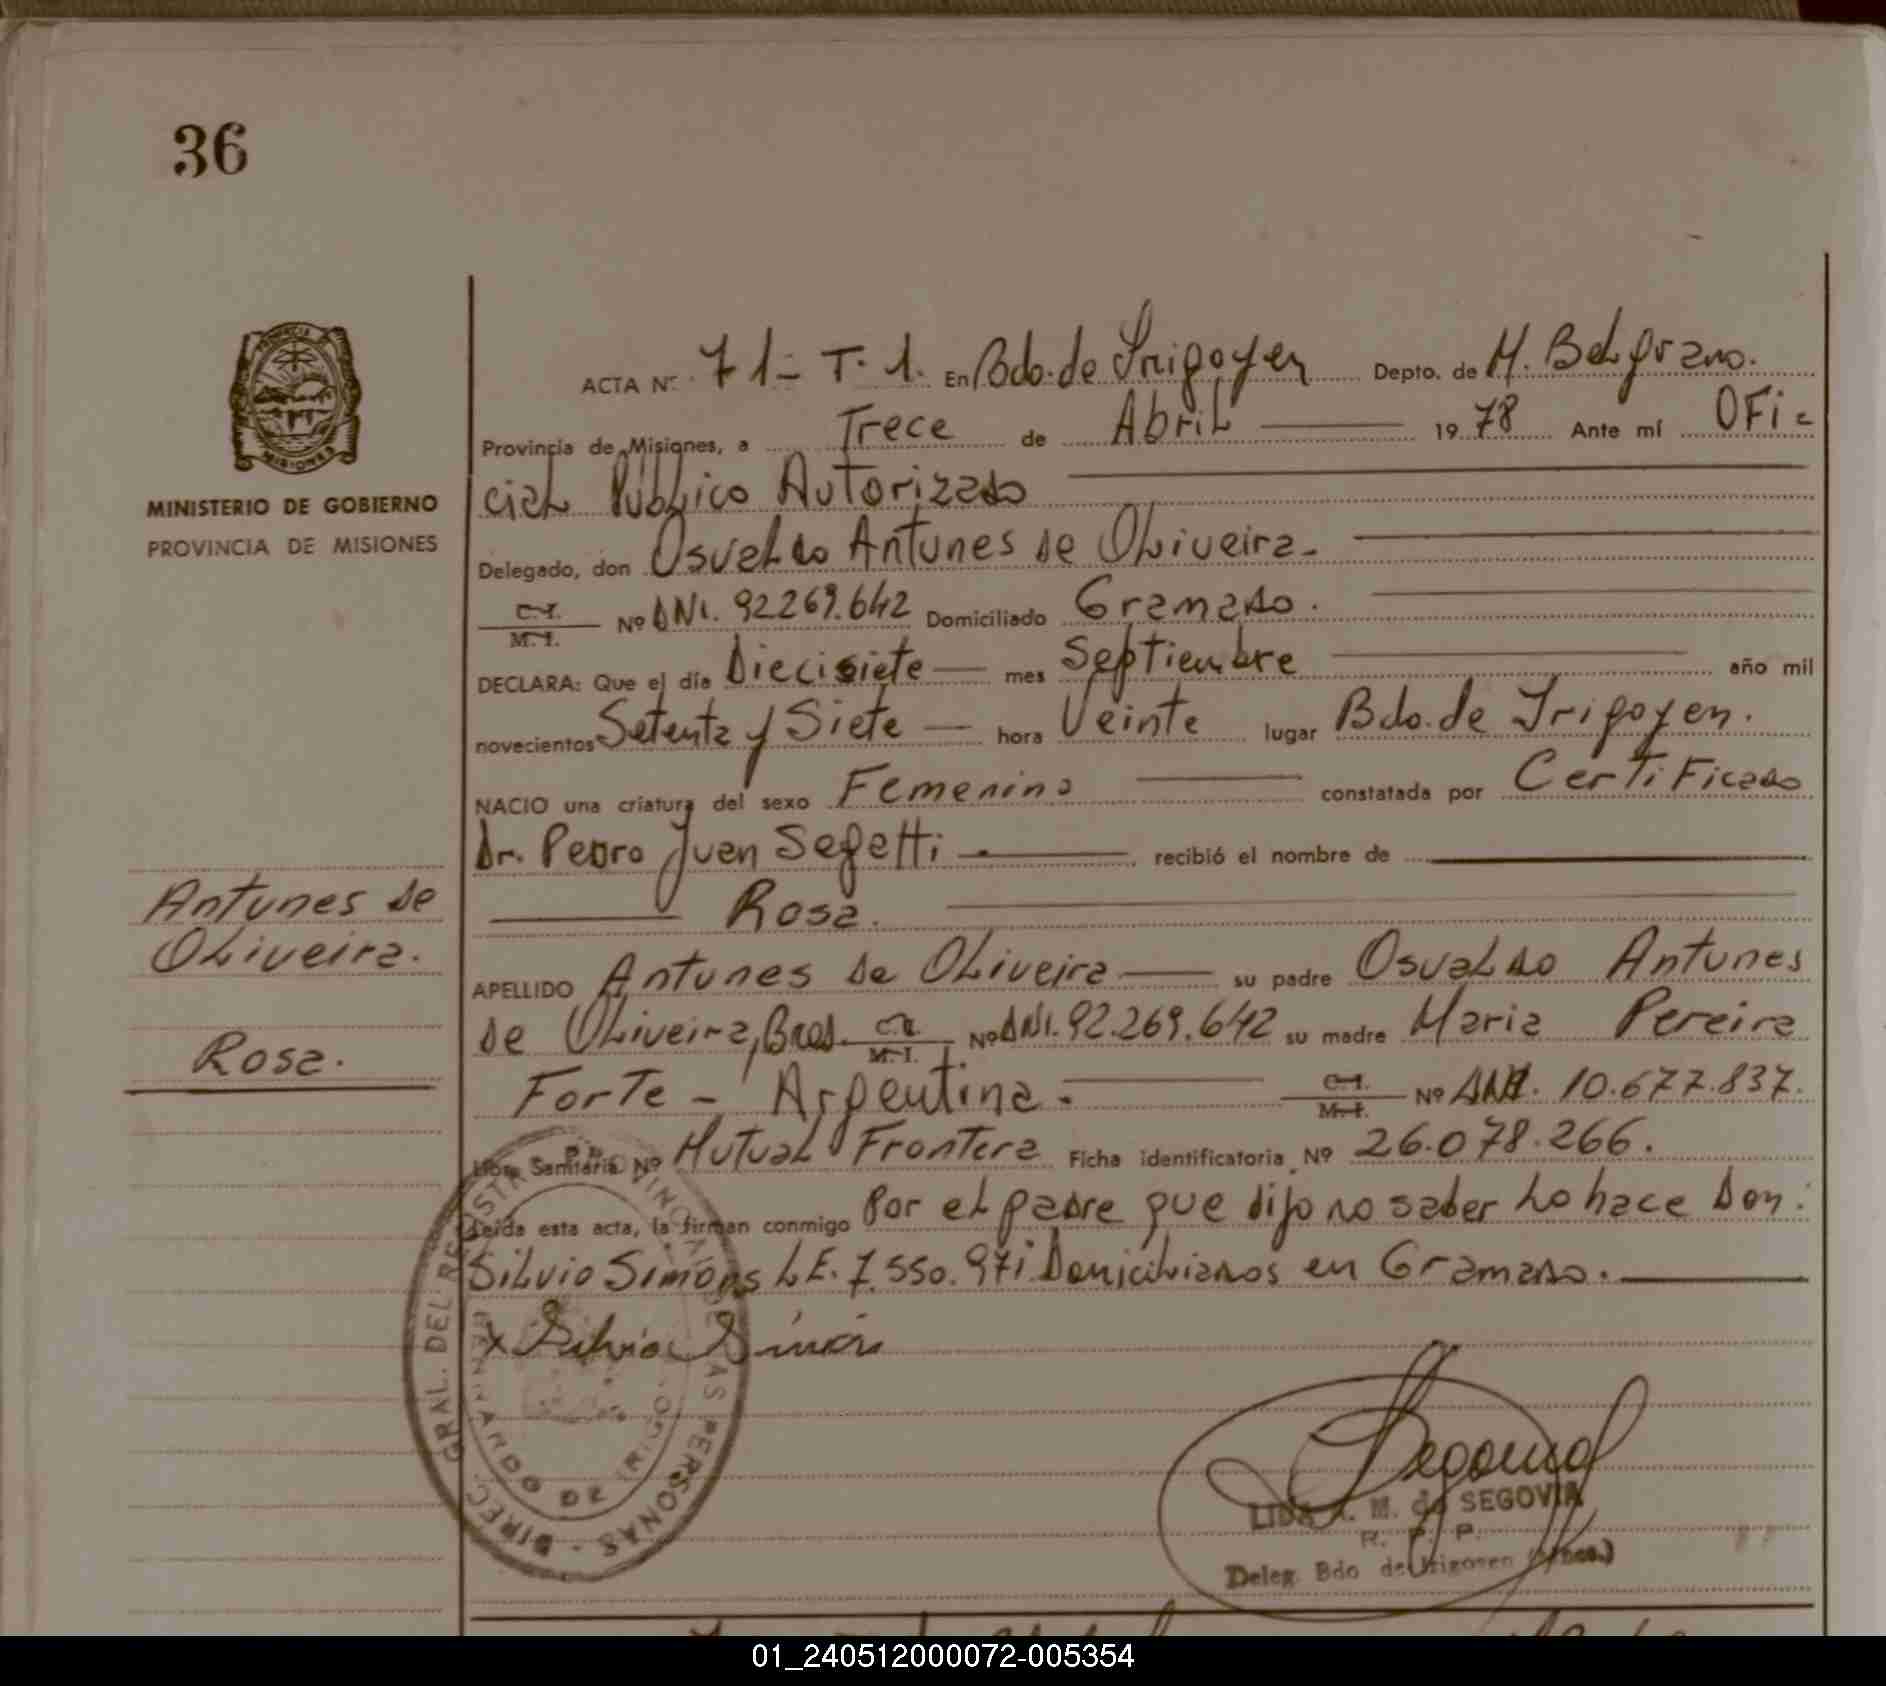 36
MINISTERIO DE GOBIERNO
PROVINCIA DE MISIONES
ACTA Nº 71 = T. 1. En Bdo. de Irigoyen Depto. de M. Belgrano.
Provincia de Misiones, a Trece de Abril 1978 Ante mí OFi=
cial Público Autorizado
Delegado, don Osvaldo Antunes de Oliveira.
C.I.
M.I. Nº DNI. 92269.642 Domiciliado Gramado.
DECLARA: Que el día Diecisiete mes Septiembre año mil
novecientos Setenta y Siete hora Veinte lugar Bdo. de Irigoyen.
NACIO una criatura del sexo Femenino constatada por Certificado
Dr. Pedro Juan Segetti recibió el nombre de
Rosa.
Antunes de
Oliveira.
Rosa.
APELLIDO Antunes de Oliveira su padre Osvaldo Antunes
de Oliveira, Bras. M.I. Nº DNI. 92.269.642 su madre Maria Pereira
Forte - Argentina. C.I.
M.I. Nº DNI. 10.677.837.
Libr. Sanitaria Nº Mutual Frontera Ficha identificatoria Nº 26.078.266.
Leída esta acta, la firman conmigo Por el padre que dijo no saber lo hace Don:
Silvio Simons L.E. 7.550.971 Domiciliados en Gramado.
x Silvio Simon
DIREC. GRAL. DEL REGISTRO PROVINCIAL DE LAS PERSONAS
BERNARDO DE IRIGOYEN
Segovia
LIDA M. de SEGOVIA
R. P. P.
Deleg. Bdo de Irigoyen (Mnes.)
01_240512000072-005354